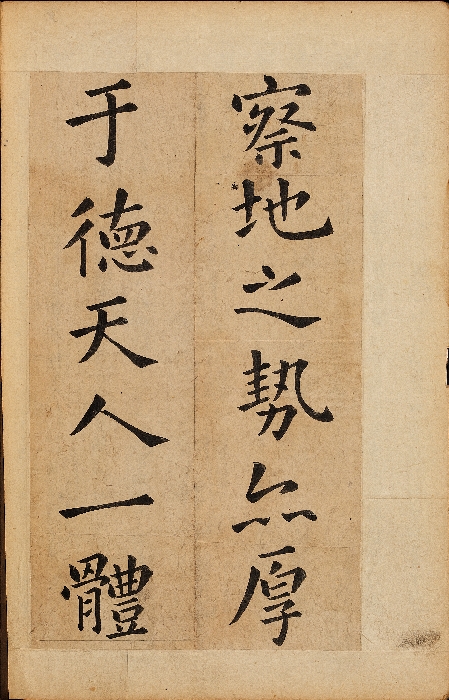 察地之勢亦厚
于德天人一體